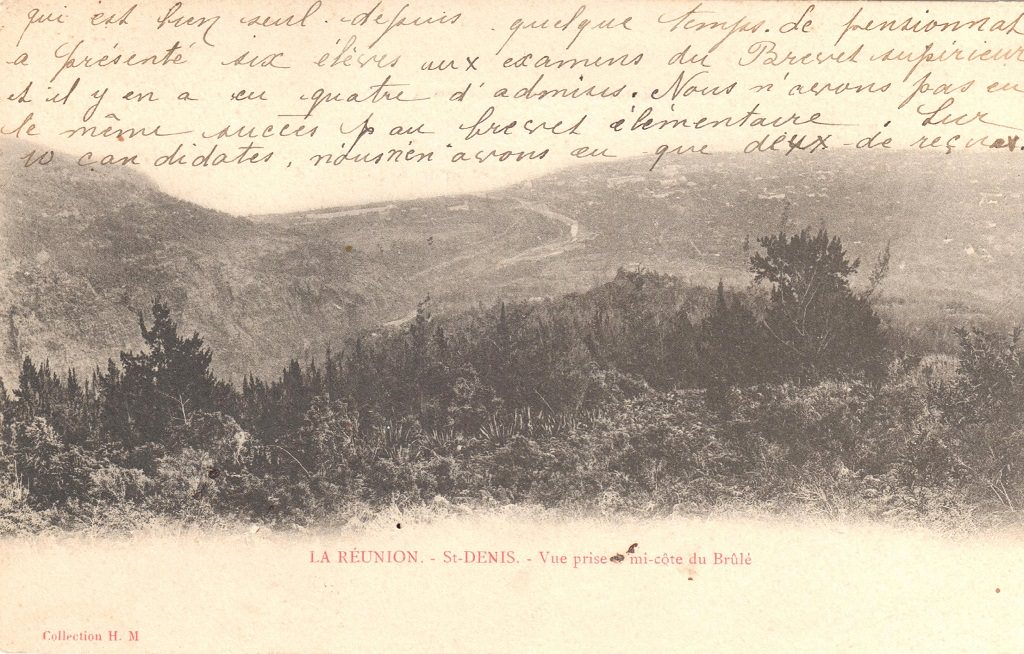 qui est bien seul. depuis quelque temps. Le pensionnat
a présenté six élèves aux examens du Brevet supérieur
et il y en a eu quatre d'admises. Nous n'avons pas eu
le même succès au brevet élémentaire. Sur
10 candidates, n'avons eu que deux de reçues.
LA RÉUNION. - St-DENIS. - Vue prise à mi-côte du Brûlé
Collection H. M